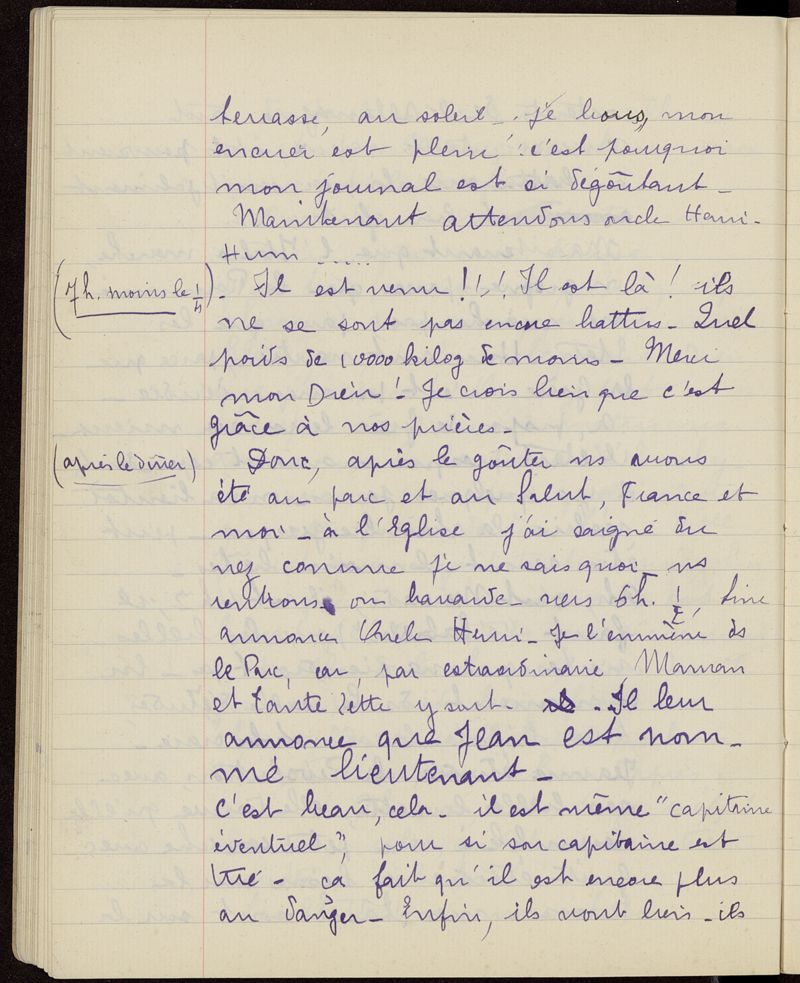 terrasse, au soleil - je bous, mon
encrier est plein ! c'est pourquoi
mon journal est si dégoûtant -
Maintenant attendons oncle Henri -
Hum .....
(7 h. moins le 1/4) - Il est venu !!! Il est là ! ils
ne se sont pas encore battus - Quel
poids de 10000 kilog de moins - Merci
mon Dieu ! - Je crois bien que c'est
grâce à nos prières -
(après le dîner) Donc, après le goûter ns avons
été au parc et au Salut, France et
moi - à l'Eglise j'ai saigné du
nez comme je ne sais quoi - ns
rentrons on bavarde - vers 6h. 1/2,
annonce Oncle Henri - Je l'emmène ds
le Parc, car, par extraordinaire, Maman
et tante y sont - . Il leur
annonce que Jean est nom-
mé lieutenant -
C'est beau, cela - il est même "capitaine
éventuel", pour si son capitaine est
tué - ça fait qu'il est encore plus
au danger - Enfin, ils vont bien - ils